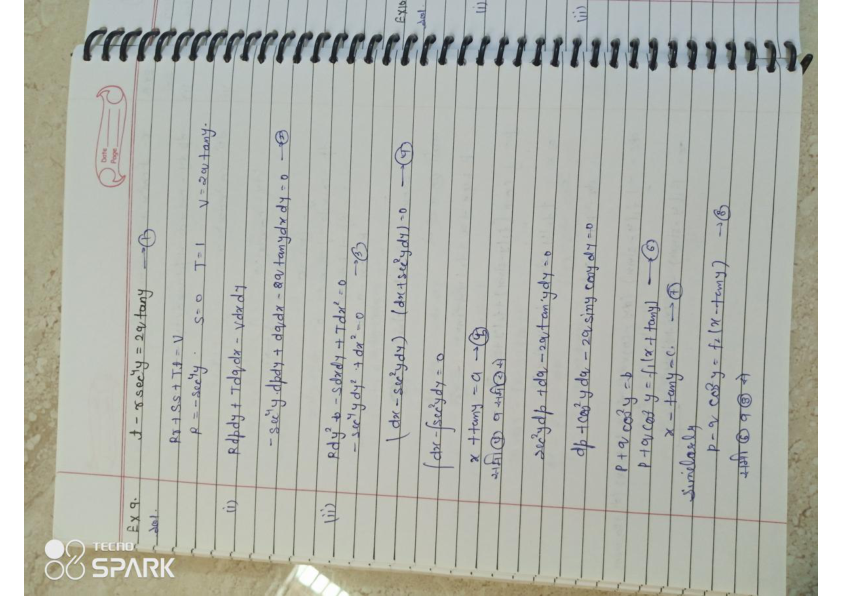 Date
Page
Ex 9. t - r sec⁴y = 2q tany → ①
Sol.
Rr + Ss + Tt = V
R = -sec⁴y. S = 0 T = 1 V = 2q tany.
i) Rdpdy + Tdqdx - Vdxdy
-sec⁴y dpdy + dqdx - 2q tanydxdy = 0 → ②
(ii) Rdy² - Sdxdy + Tdx² = 0
-sec⁴y dy² + dx² = 0 → ③
(dx - sec²ydy) (dx + sec²ydy) = 0 → ④
∫dx - ∫sec²ydy = 0
x + tany = a →
समी व समी से
sec²ydp + dq - 2q tanydy = 0
dp + cos²ydq - 2q siny cosy dy = 0
p + q cos²y = b
p + q cos²y = f₁(x + tany) → ⑥
x - tany = c. → ⑦
Similarly
p - q cos²y = f₂(x - tany) → ⑧
समी ⑥ व ⑧ से
Ex10
Sol.
i)
(ii)
TECNO
SPARK